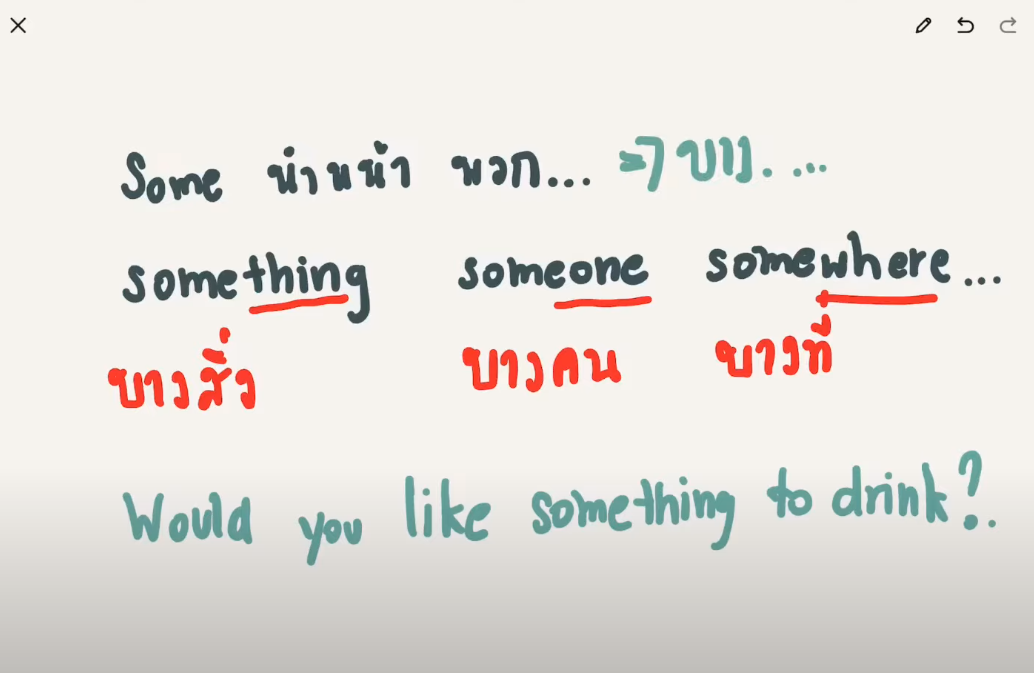 Some นำหน้า พวก... => บาง....
something someone somewhere...
บางสิ่ง บางคน บางที่
Would you like something to drink?.